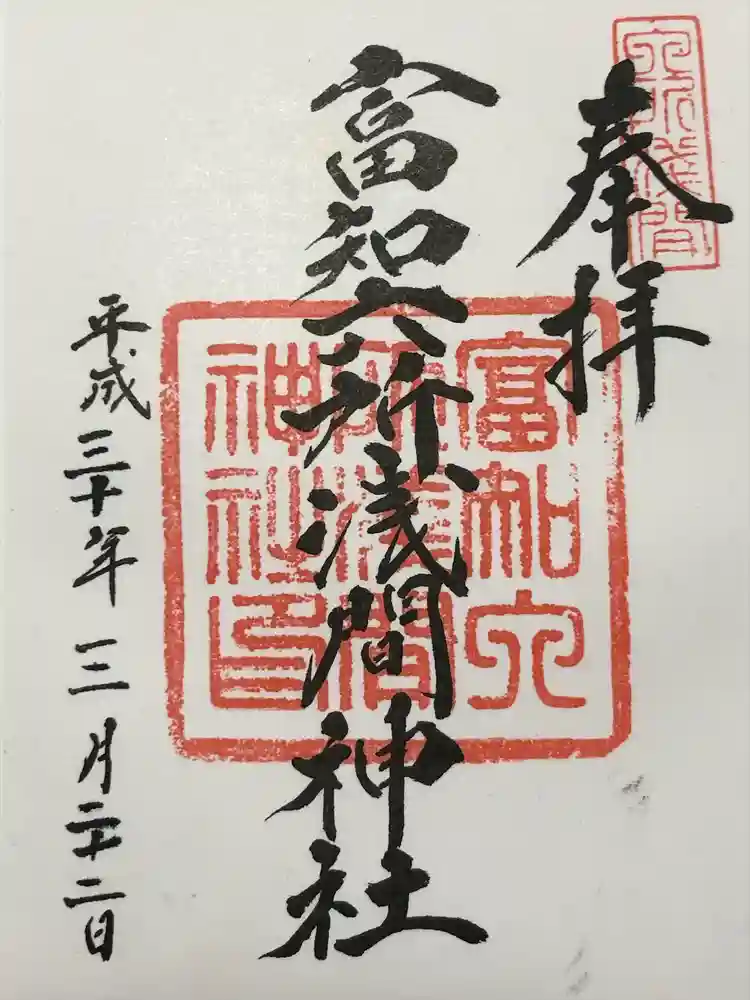 六所浅間
奉拝
富知六所浅間神社
富知六
所浅間
神社印
平成三十年三月二十二日